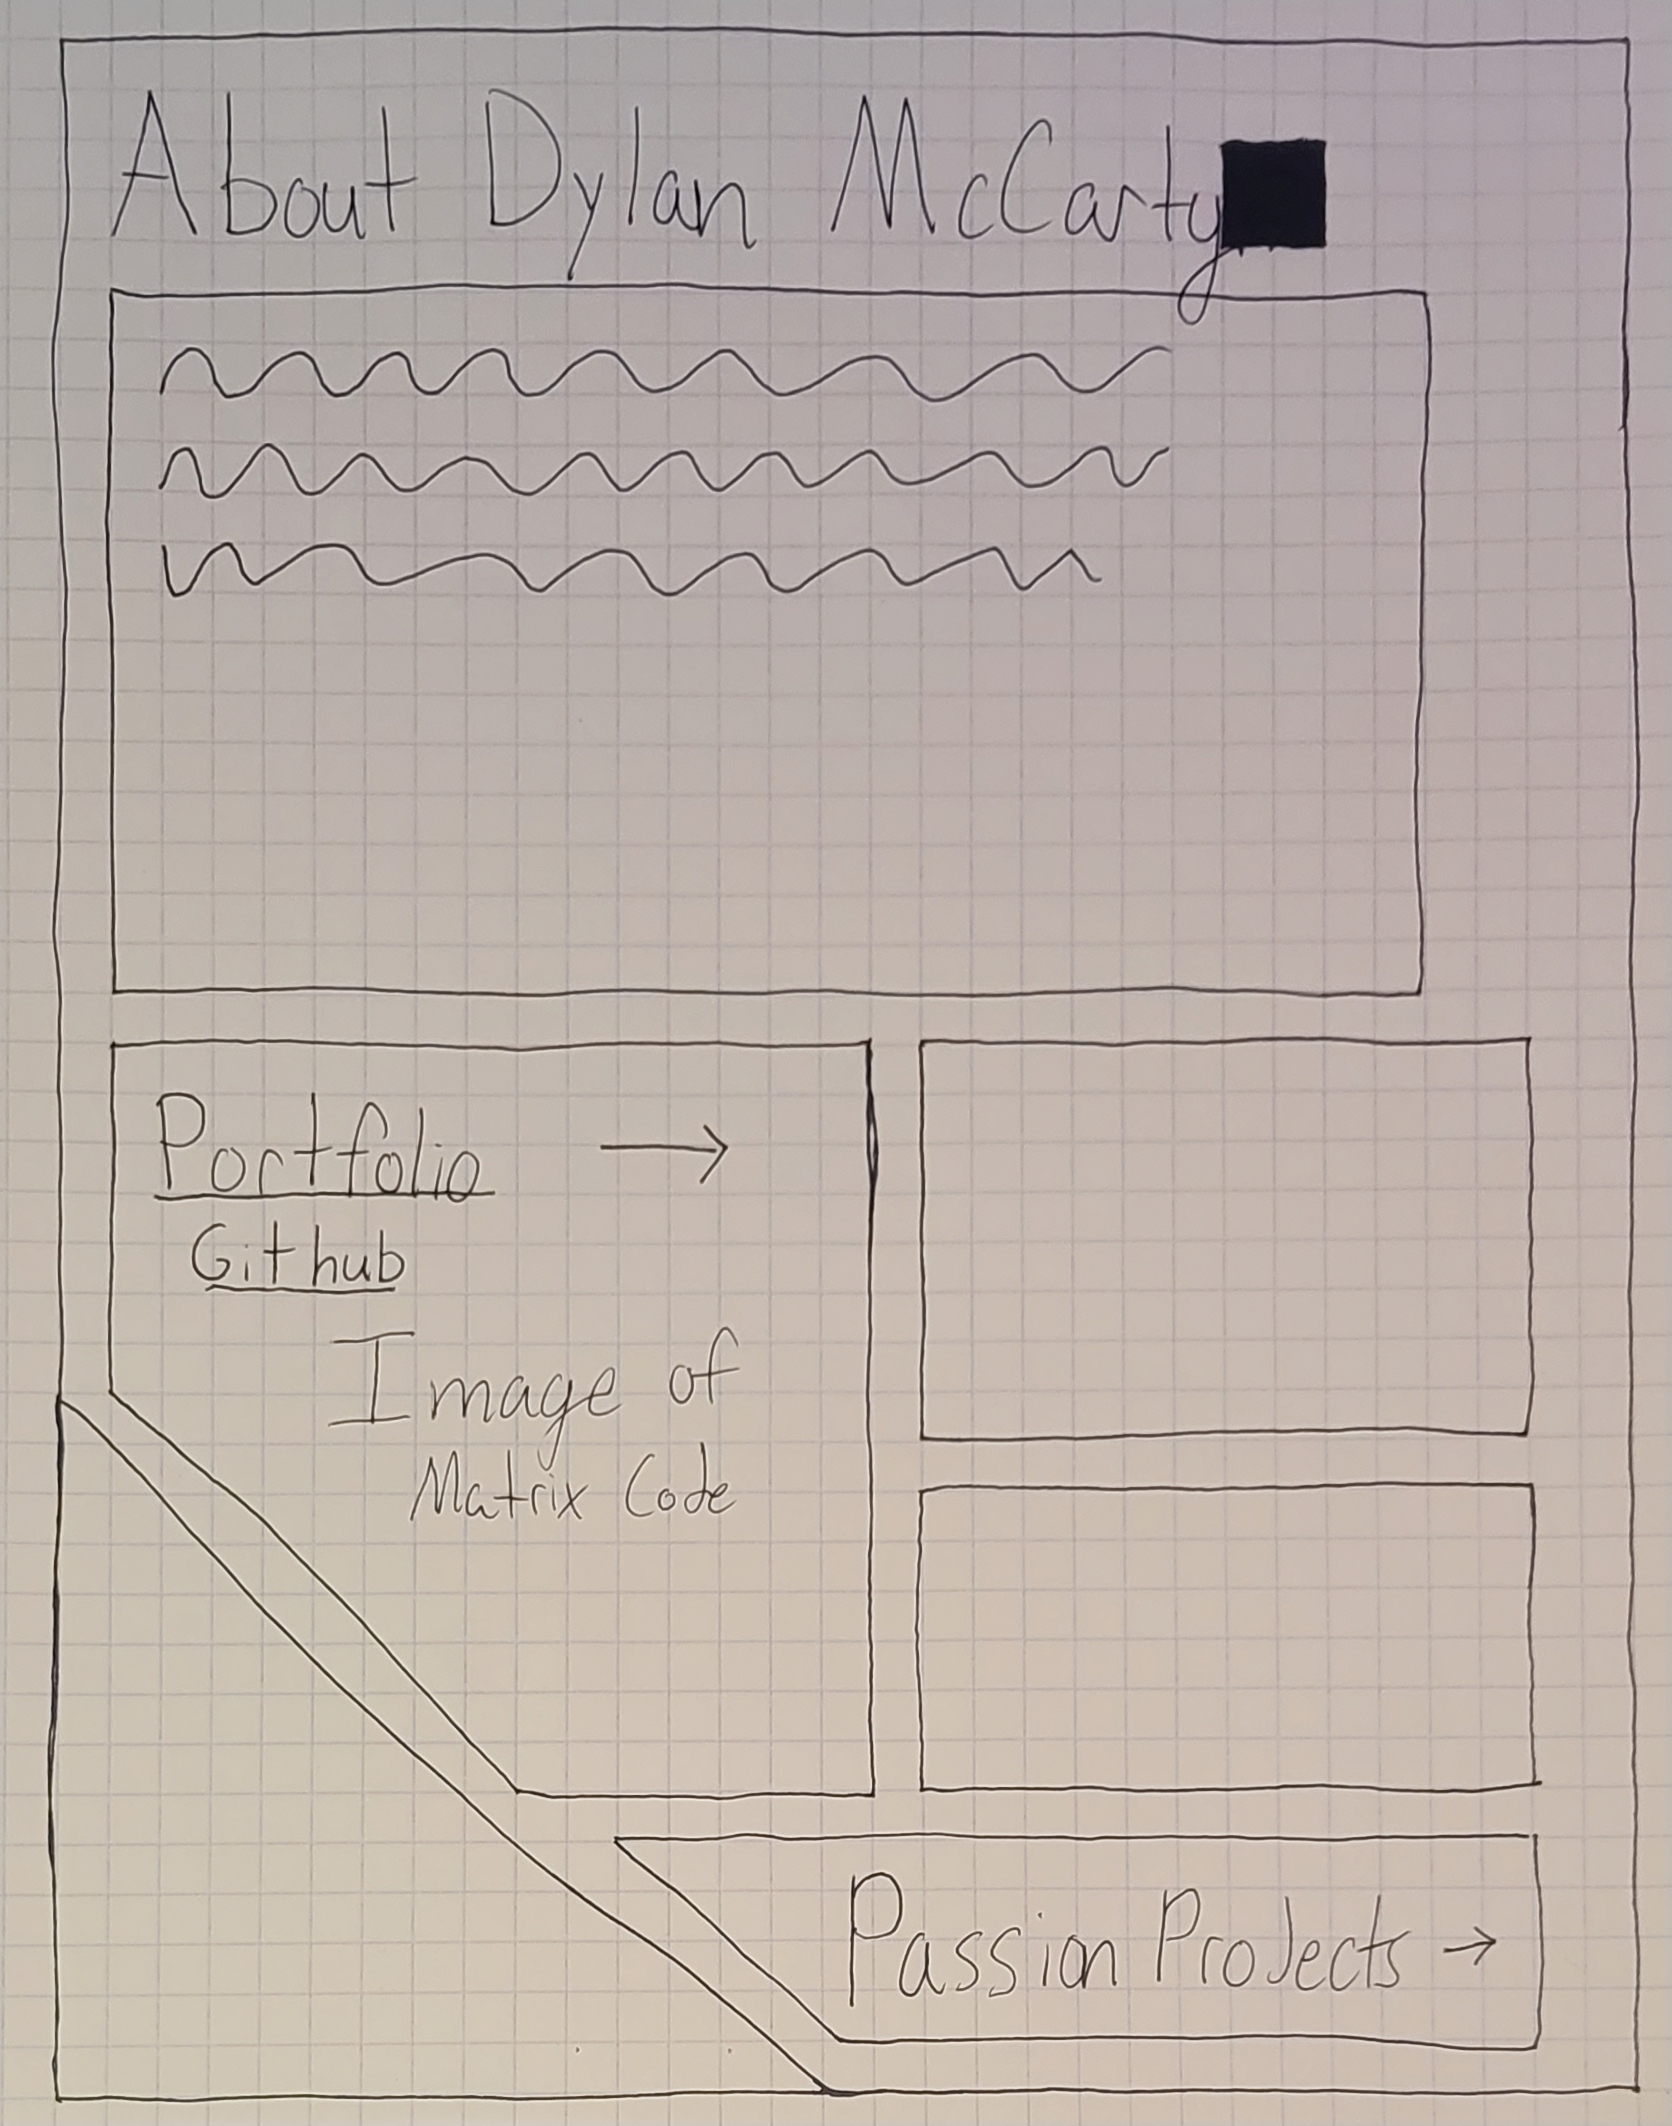 About Dylan McCarty
Portfolio →
Github
Image of
Matrix Code
Passion Projects →